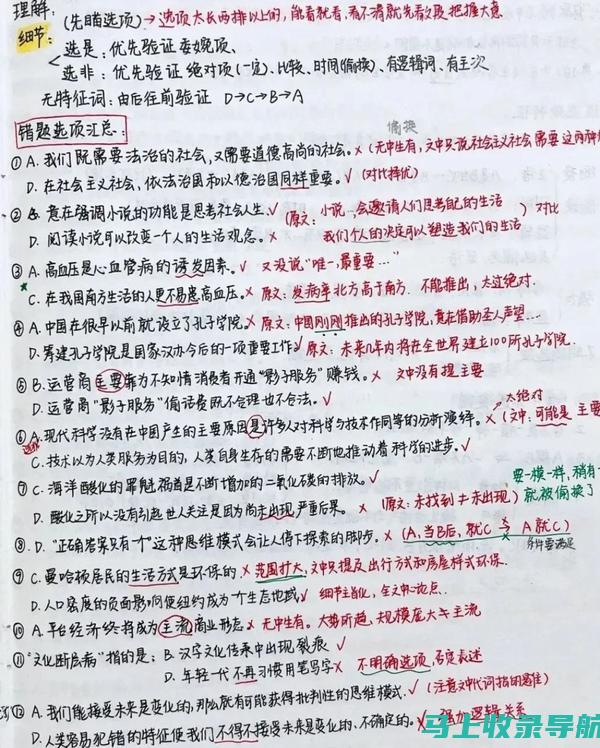 理解:
(先瞄选项)→选项太长两排以上的,能看就看,看不清就先看文段把握大意
细节:
选是:优先验证委婉项、
选非:优先验证绝对项(一定)、比较、时间(偷换)、有逻辑词、有主次
无特征词:由后往前验证 D→C→B→A
错题选项汇总:
偷换
①A.我们既需要法治的社会,又需要道德高尚的社会。×(无中生有,文中只说社会主义社会需要这两种
D.在社会主义社会,依法治国和以德治国同样重要。√(对比择优)
② 意在强调小说的功能是思考社会人生√(原文:小说…会邀请人们思考自己的生活)对比
D.阅读小说可以改变一个人的生活观念。× 我们个人的决定可以塑造我们的生活
③A.高血压是心血管病的诱发因素。√ 又没说"唯一,最重要…"
C.在我国南方生活的人更不易患高血压。×原文:发病率北方高于南方.不能推出,太过绝对.
④A.中国在很早以前就设立了孔子学院。×原文:中国刚刚推出的孔子学院,意在借助圣人声望…
D.筹建孔子学院是国家汉办今后的一项重要工作√原文:未来几年内将在全世界建立100所孔子学院.
⑤B.运营商主要靠为不知情消费者开通"影子服务"赚钱。× 文中没有提主要
D.运营商"影子服务"偷话费既不合理也不合法。√
太绝对
⑥A.现代科学没有在中国产生的主要原因是许多人对科学与技术作同等的分析演绎。×(文中:可能是 主要
C.技术以为人类服务为目的,人类自身生存的需要不断地推动着科学的进步。√
⑦C.海洋酸化的罪魁祸首是不断增加的二氧化碳的排放。√
要一模一样,稍有
D.酸化之所以没有引起世人关注是因为尚未出现严重后果。×(原文:未找到≠未出现)就被偷换了
⑧D."正确答案只有一个"这种思维模式会让人停下探索的脚步。×(A,当B后,就C → A就C)
条件要满足
⑨C.曼哈顿居民的生活方式是环保的×范围扩大,文中只提及出行方式和房屋样式环保.
D.人口密度的负面影响使纽约成为一个生态地域√ 细节主旨化,全文中心论点.
⑩A.平台经济终将成为主流商业形态× 无中生有。大势所趋,规模庞大≠主流
⑪"文化断层病"指的是:B.汉字文化传承中出现裂痕√
D.年轻一代不再习惯用笔写字× 不明确选项,否度表述
⑫A.我们能接受未来是变化的,那么就有可能获得批判性的思维模式.√(注意文中代词指的是谁)
D.人类容易犯错的特征使我们不得不接受未来是变化的、不确定的。×强加逻辑关系
马上收录导航